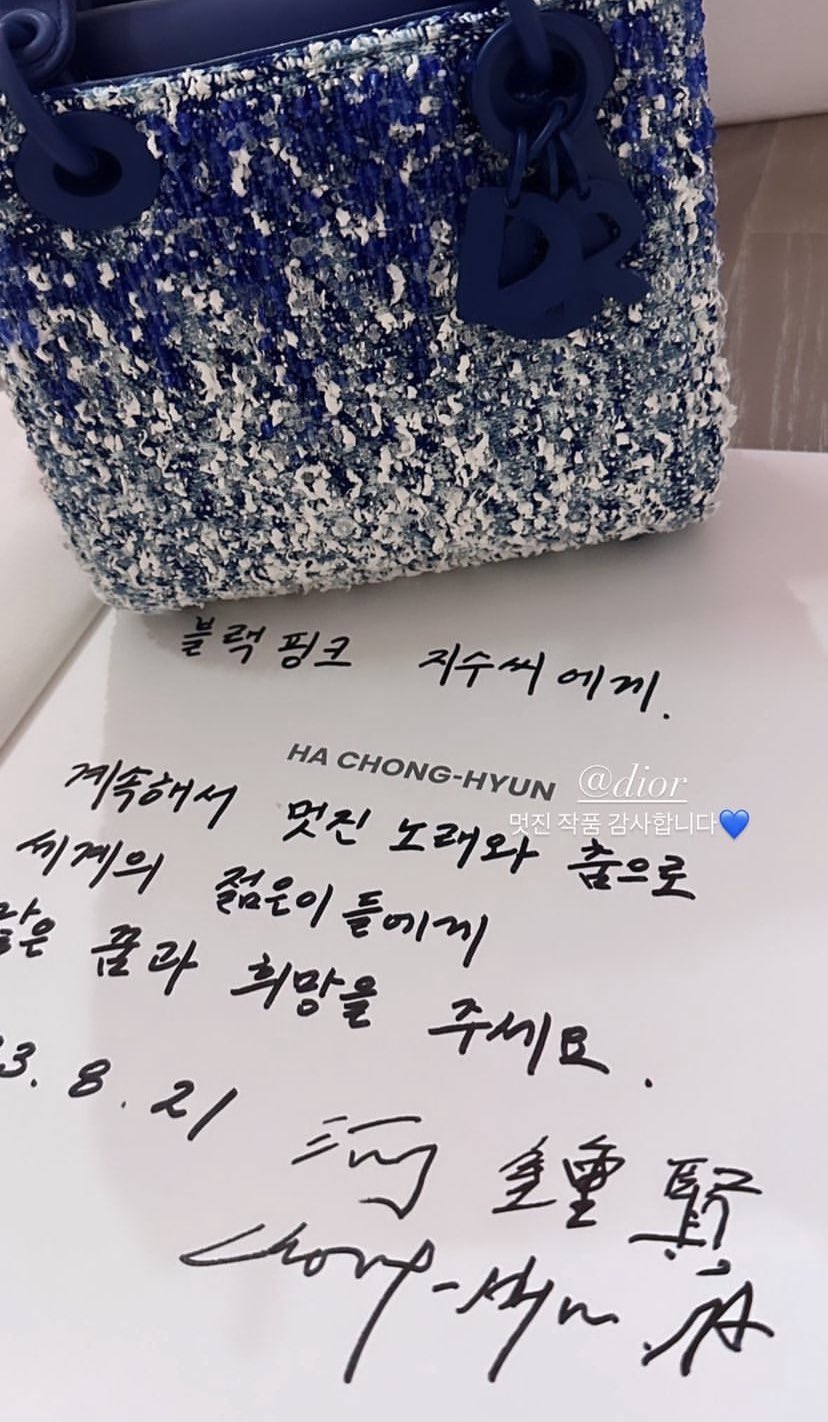 블랙핑크 지수씨에게.
HA CHONG-HYUN
@dior
멋진 작품 감사합니다💙
계속해서 멋진 노래와 춤으로
세계의 젊은이들에게
많은 꿈과 희망을 주세요.
3. 8. 21
河 鍾賢
Chong-Hyun. HA